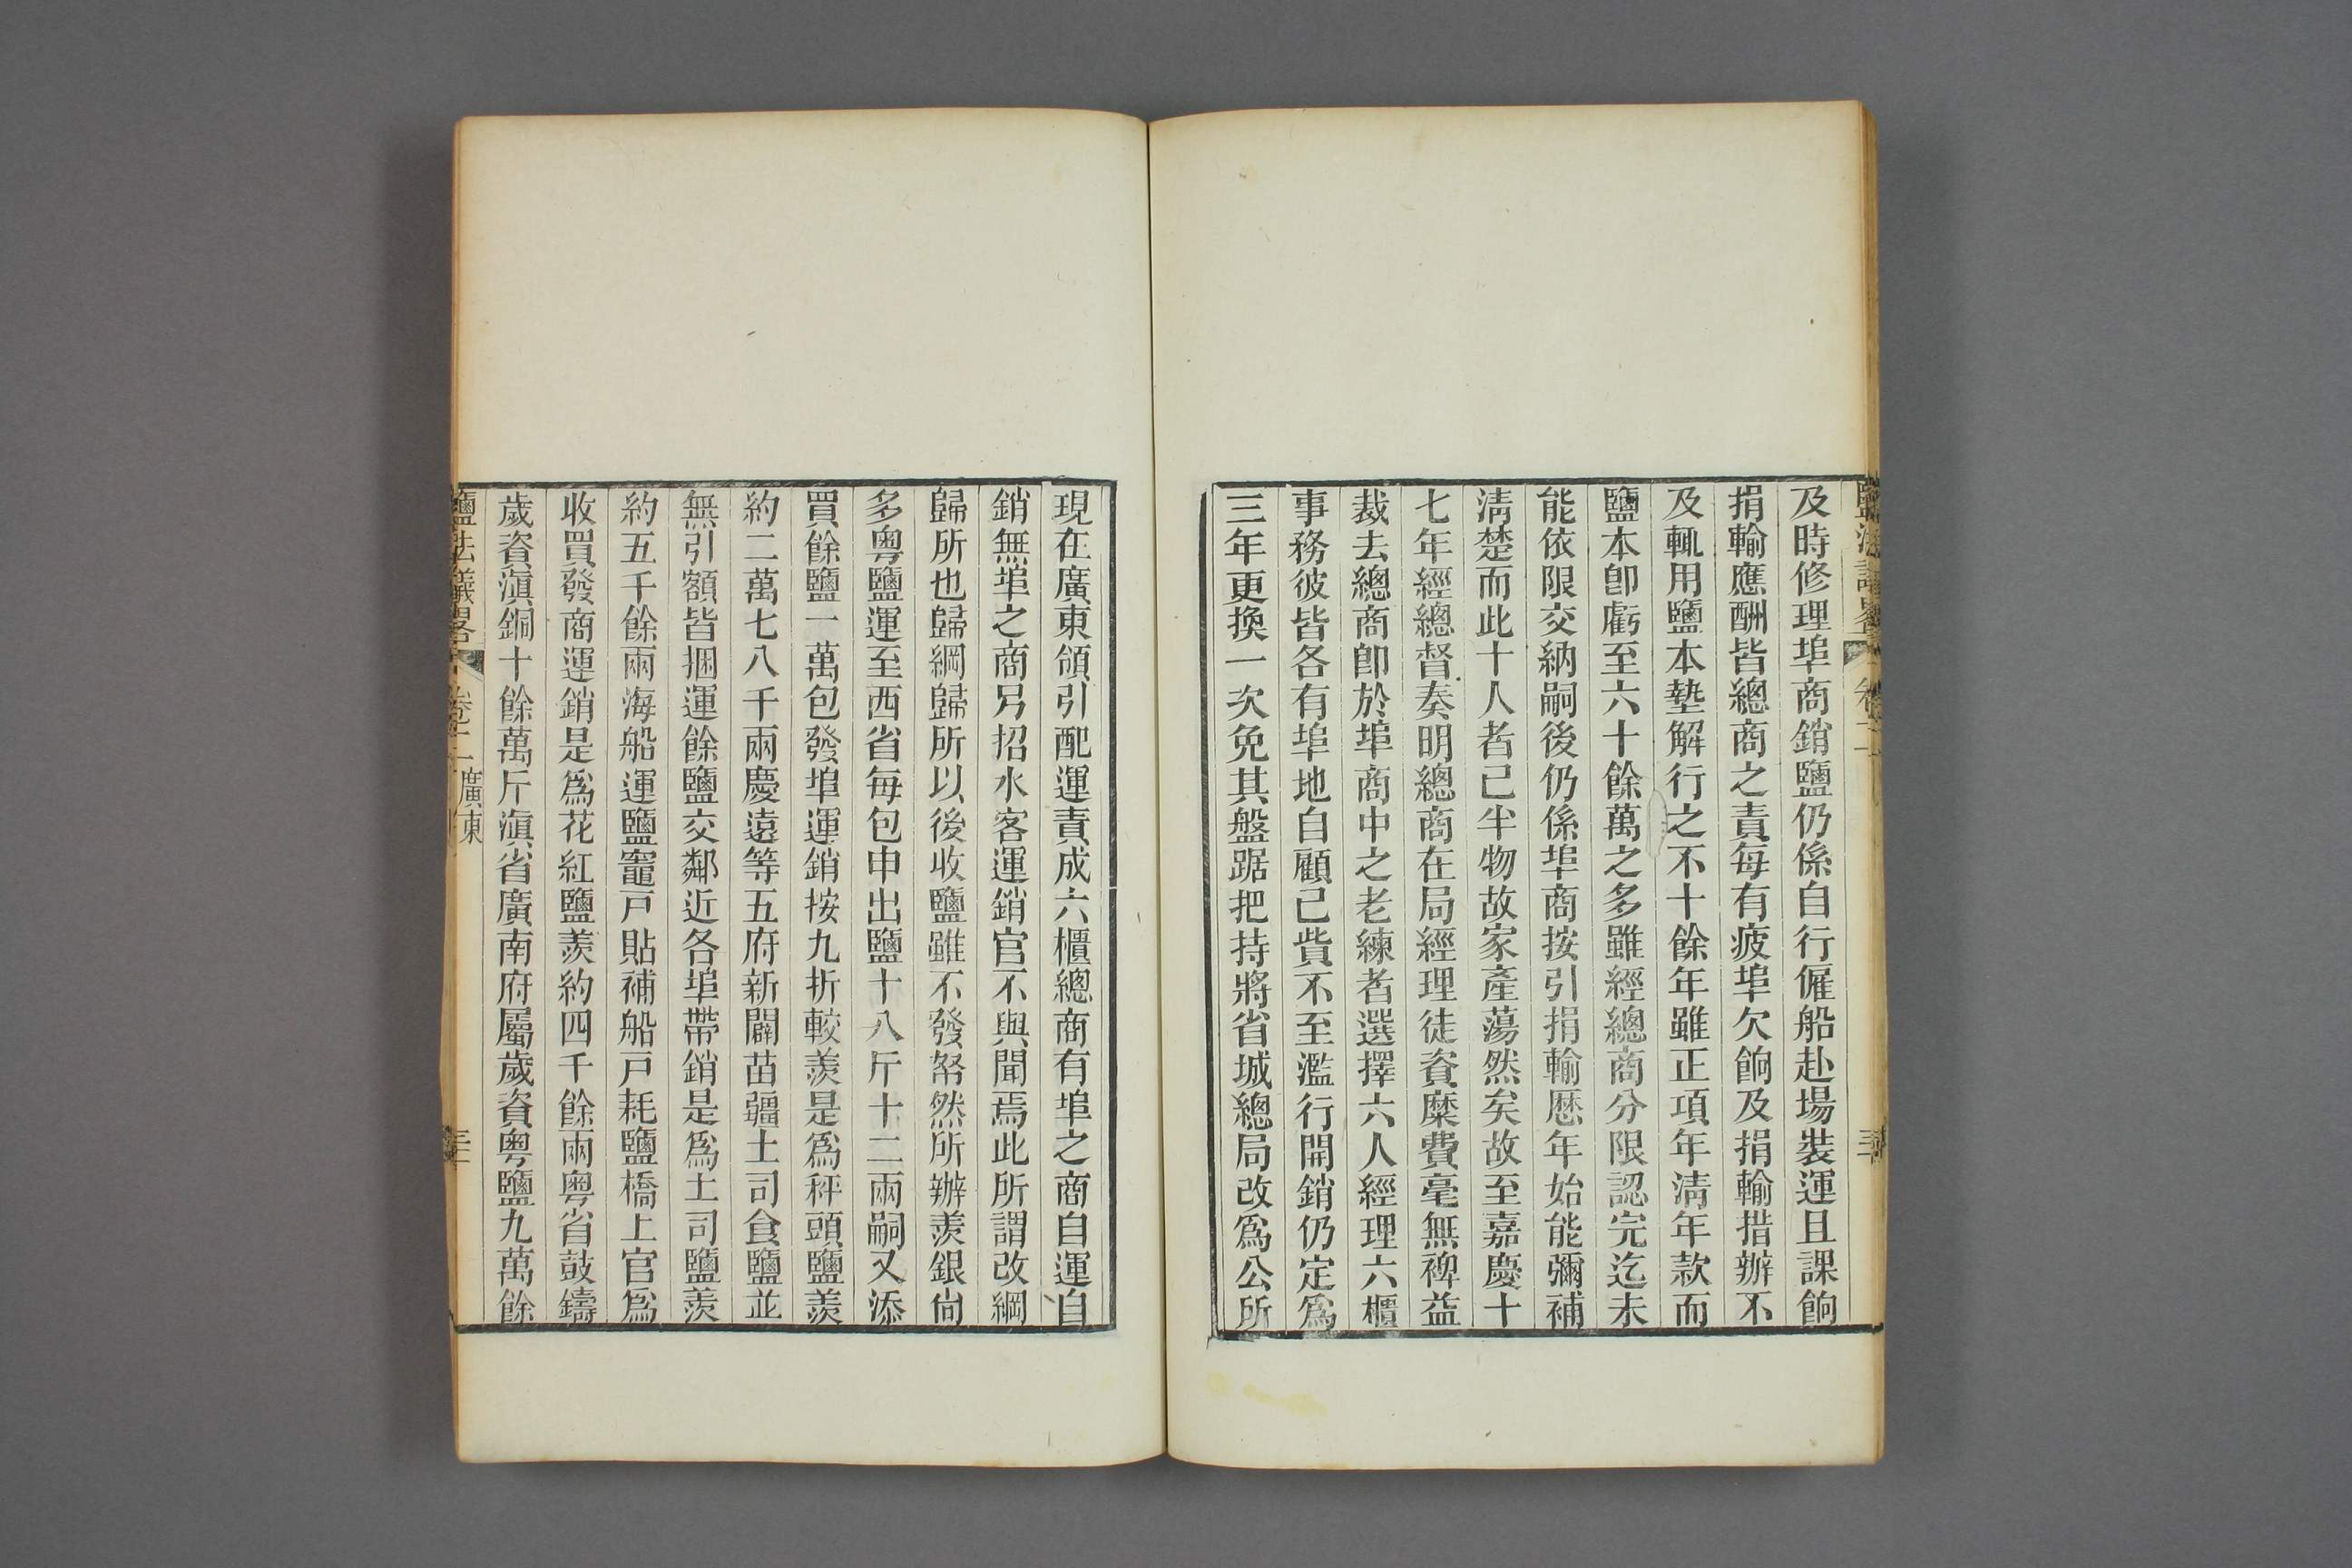 及時修理埠商銷鹽仍係自行僱船赴場裝運且課餉
捐輸應酬皆總商之責每有疲埠欠餉及捐輸措辦不
及輒用鹽本墊解行之不十餘年雖正項年清年款而
鹽本卽虧至六十餘萬之多雖經總商分限認完迄未
能依限交納嗣後仍係埠商按引捐輸歴年始能彌補
清楚而此十人者已半物故家產蕩然矣故至嘉慶十
七年經總督奏明總商在局經理徒資糜費毫無裨益
裁去總商卽於埠商中之老練者選擇六人經理六櫃
事務彼皆各有埠地自顧己貲不至濫行開銷仍定爲
三年更換一次免其盤踞把持將省城總局改爲公所
現在廣東領引配運責成六櫃總商有埠之商自運自
銷無埠之商另招水客運銷官不與聞焉此所謂改綱
歸所也歸綱歸所以後收鹽雖不發帑然所辦羨銀尙
多粵鹽運至西省每包申出鹽十八斤十二兩嗣又添
買餘鹽一萬包發埠運銷按九折較羨是爲秤頭鹽羨
約二萬七八千兩慶遠等五府新闢苗疆土司食鹽並
無引額皆捆運餘鹽交鄰近各埠帶銷是爲土司鹽羨
約五千餘兩海船運鹽竈戸貼補船戸耗鹽橋上官爲
收買發商運銷是爲花紅鹽羨約四千餘兩粵省鼓鑄
歲資滇銅十餘萬斤滇省廣南府屬歲資粵鹽九萬餘
鹽法議畧 卷二 廣東